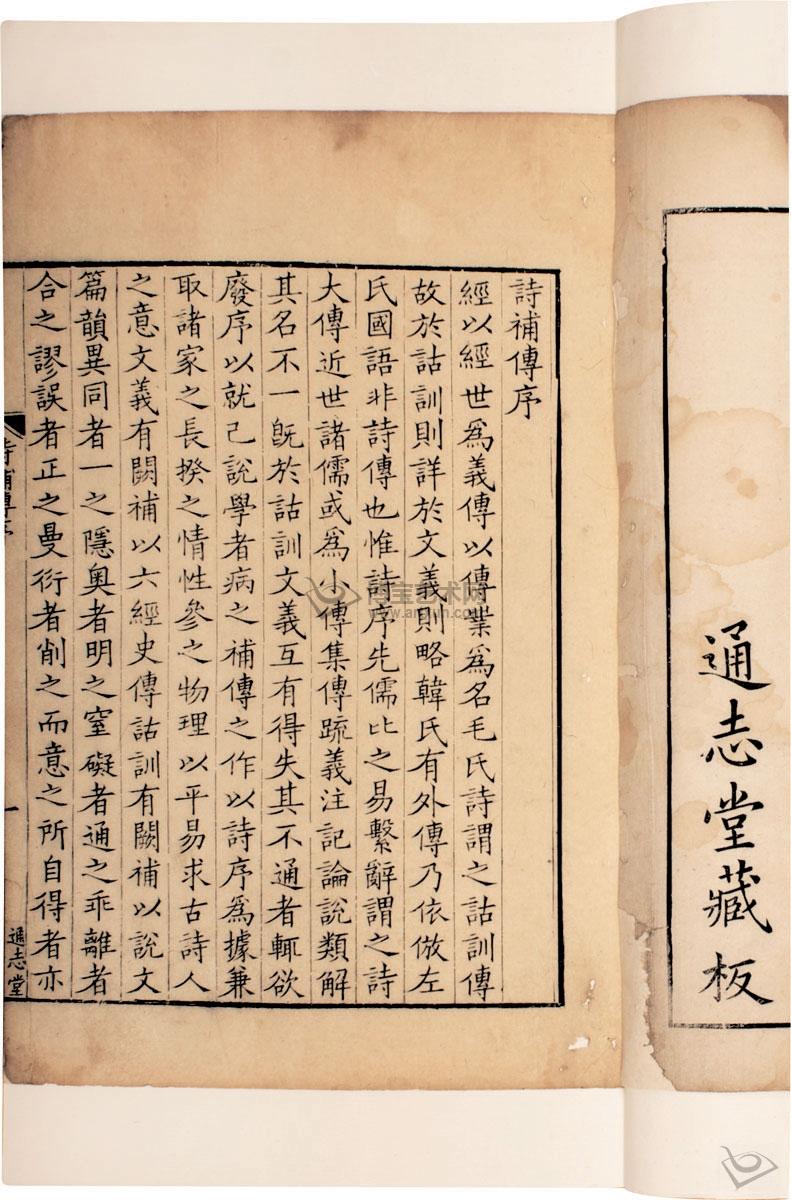 通志堂藏板
詩補傳序
經以經世爲義傳以傳業爲名毛氏詩謂之詁訓傳
故於詁訓則詳於文義則略韓氏有外傳乃依倣左
氏國語非詩傳也惟詩序先儒比之易繫辭謂之詩
大傳近世諸儒或爲小傳集傳疏義注記論說類解
其名不一旣於詁訓文義互有得失其不通者輒欲
廢序以就己說學者病之補傳之作以詩序爲據兼
取諸家之長揆之情性參之物理以平易求古詩人
之意文義有闕補以六經史傳詁訓有闕補以說文
篇韻異同者一之隱奧者明之窒礙者通之乖離者
合之謬誤者正之曼衍者削之而意之所自得者亦
詩補傳序
一
通志堂
博宝艺术网